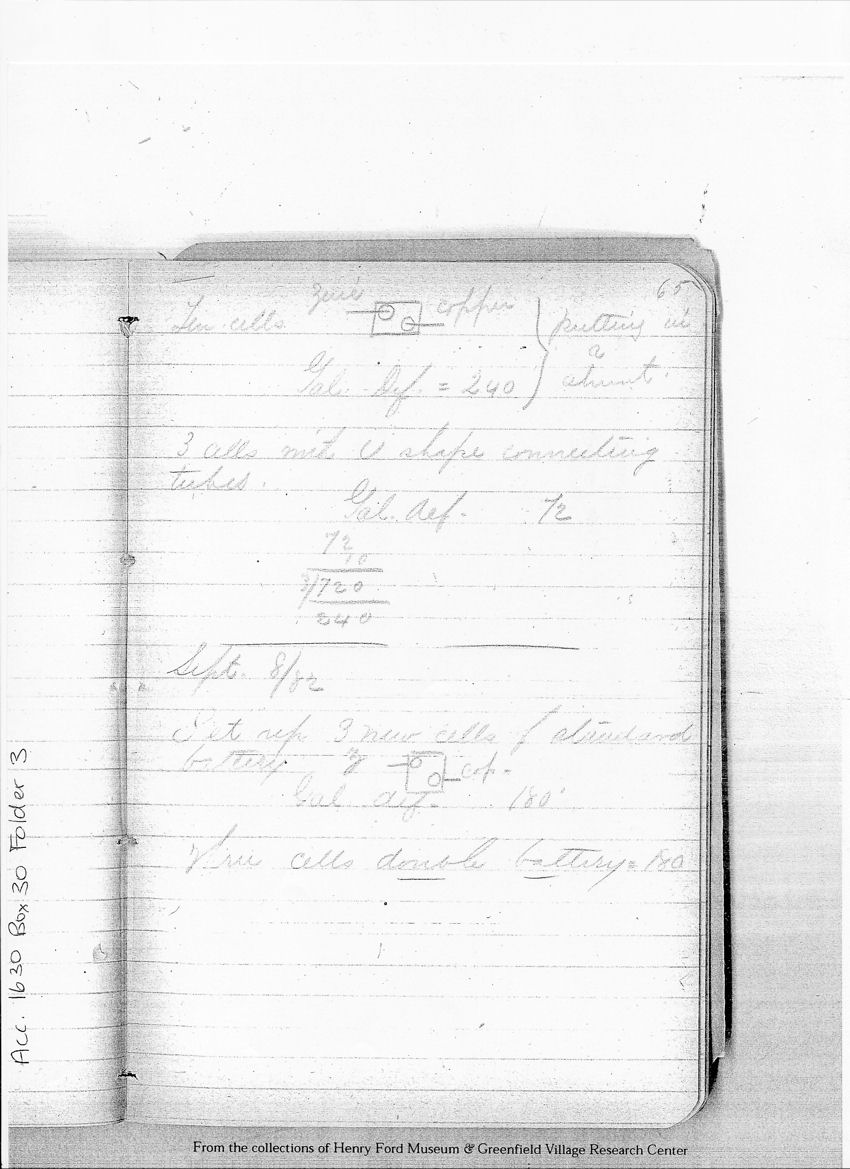 65
Ten cells zinc copper putting in
a
Gal. Def. = 240 shunt.
3 cells with U shape connecting
tubes.
Gal. def. 72
72
10
3/720
240
Sept. 8/82
Set up 3 new cells of standard
battery z cop.
Gal def. 180°
cells double battery = 180
Acc. 1630 Box 30 Folder 3
From the collections of Henry Ford Museum & Greenfield Village Research Center